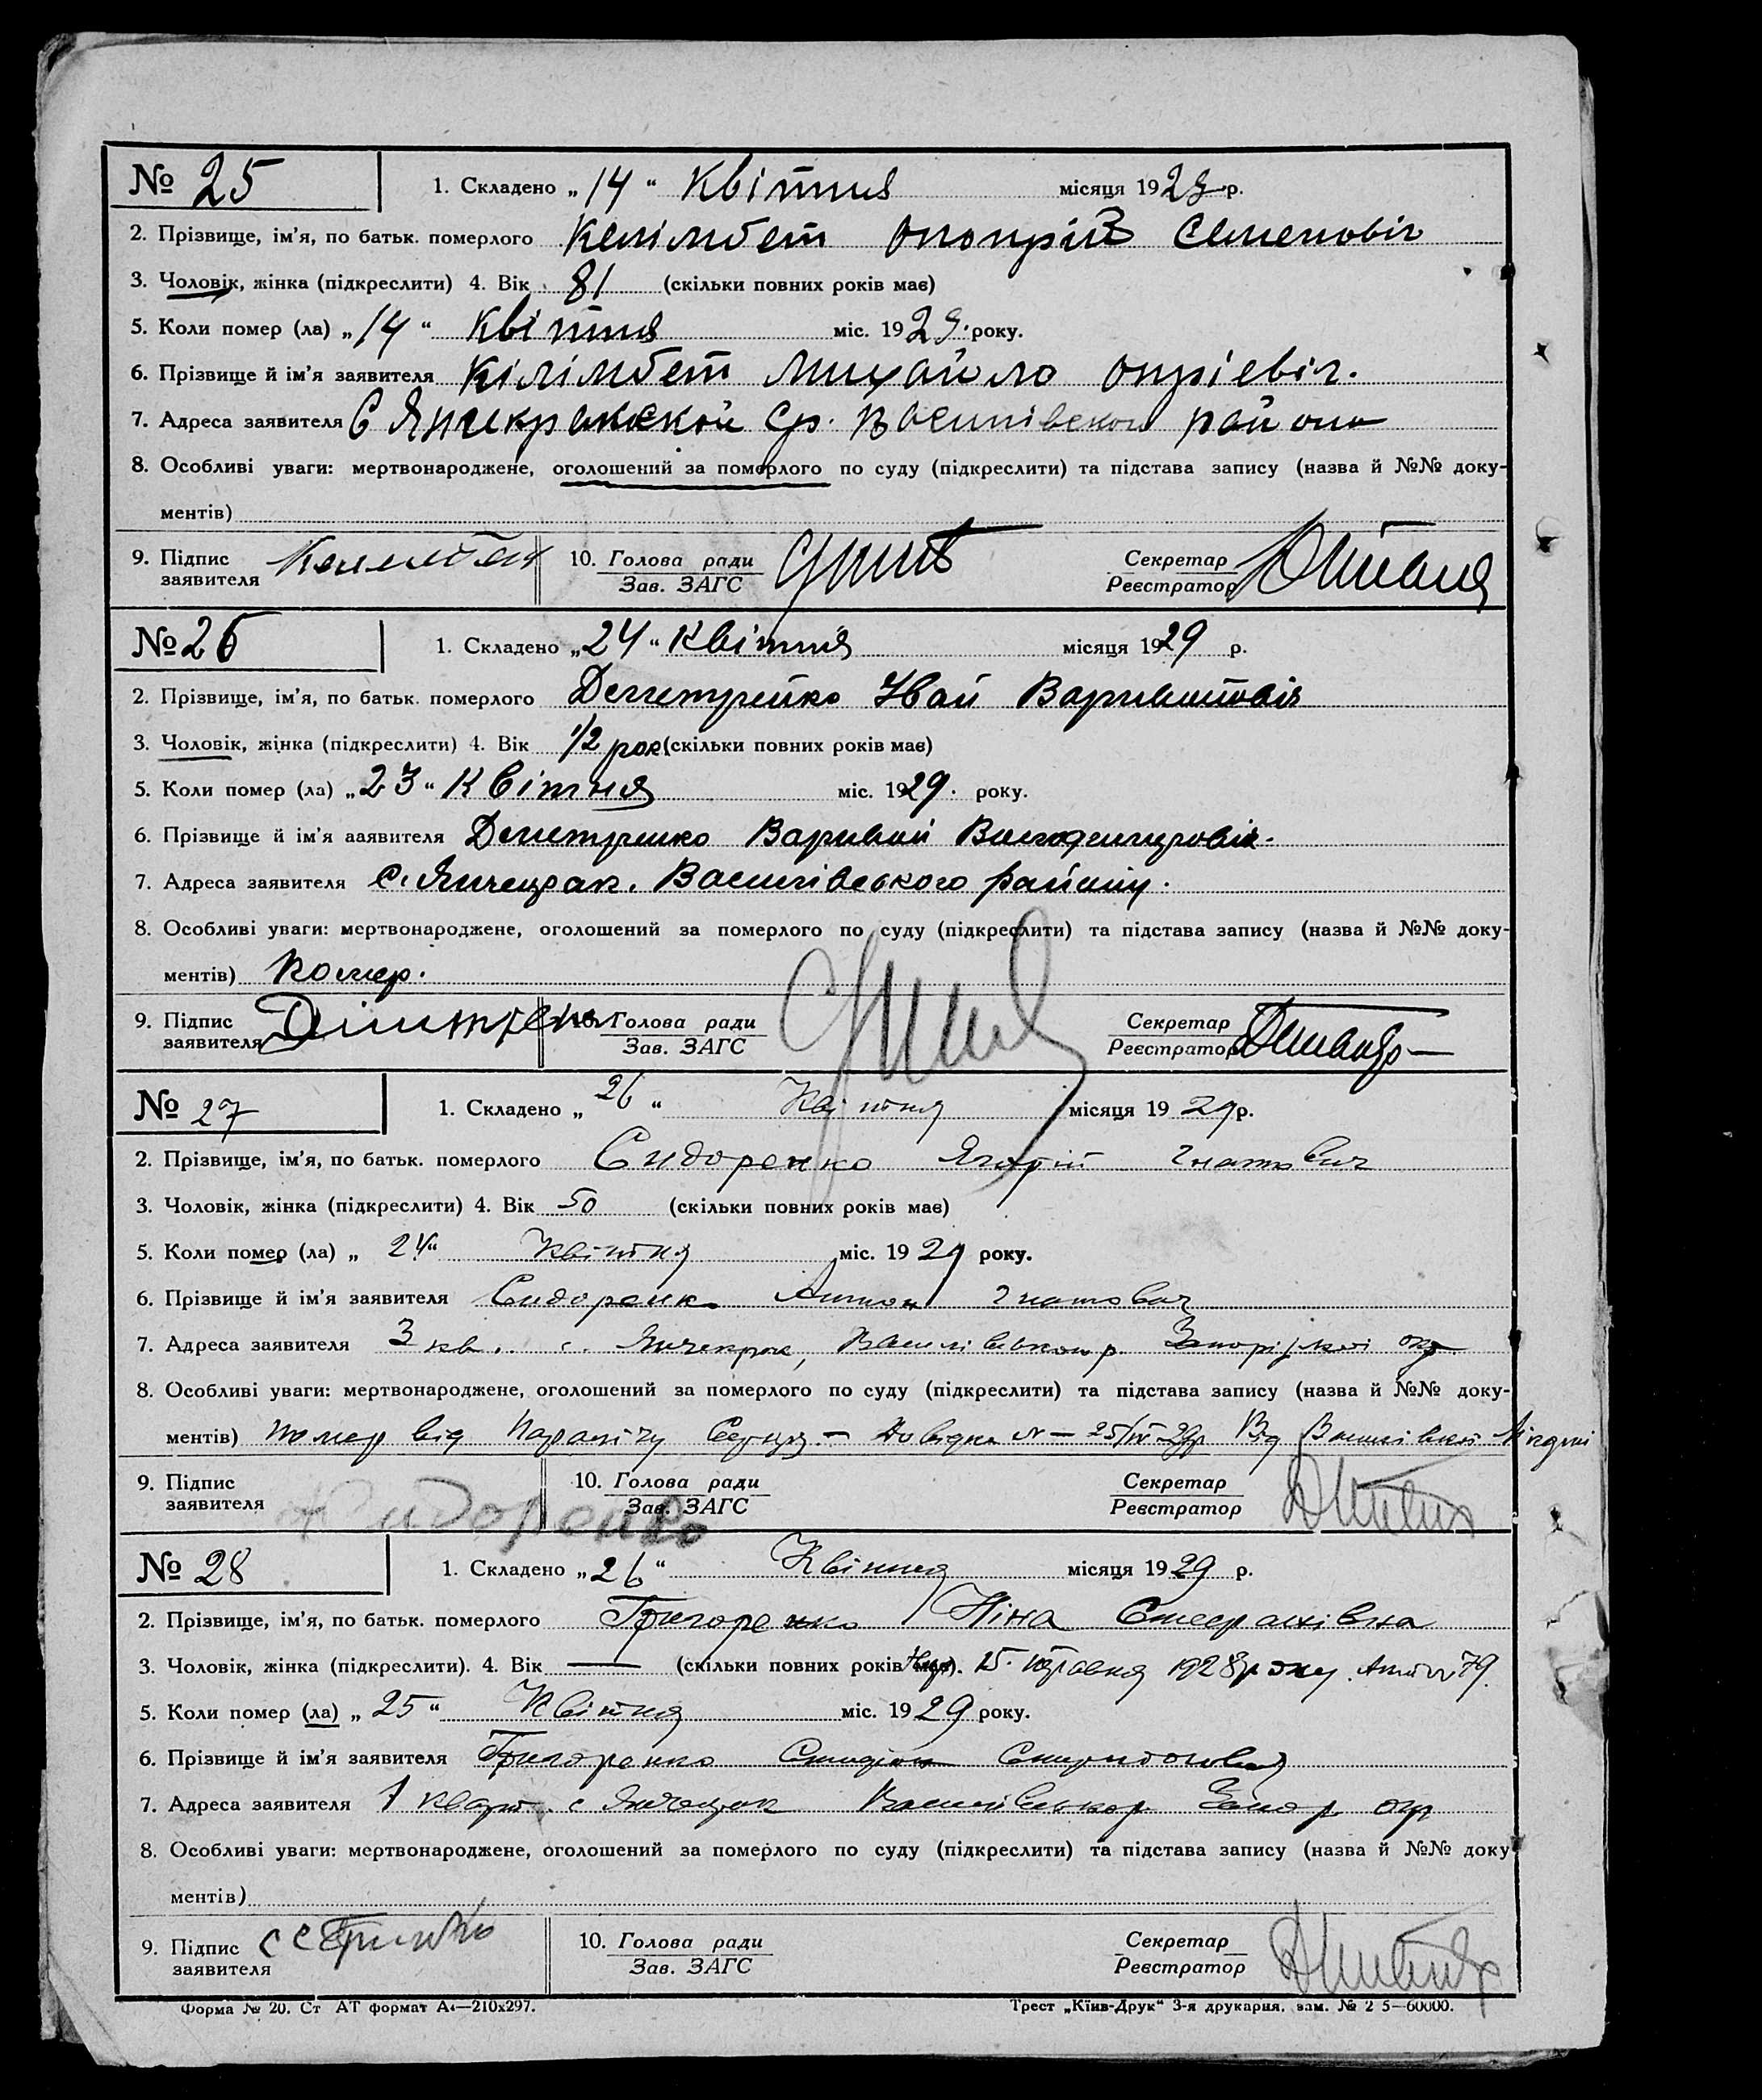 № 25 1. Складено „14“ Квітня місяця 1929 р.
2. Прізвище, ім'я, по батьк. померлого Келімбет Онопрій Семеновіч
3. Чоловік, жінка (підкреслити) 4. Вік 81 (скільки повних років має)
5. Коли помер (ла) „14“ Квітня міс. 1929. року.
6. Прізвище й ім'я заявителя Кілімбет Михайло Опріевіч.
7. Адреса заявителя С район
8. Особливі уваги: мертвонароджене, оголошений за померлого по суду (підкреслити) та підстава запису (назва й №№ доку-
ментів)
9. Підпис 10. Голова ради Секретар
заявителя Зав. ЗАГС Реєстратор
№ 26 1. Складено „24“ Квітня місяця 1929 р.
2. Прізвище, ім'я, по батьк. померлого
3. Чоловік, жінка (підкреслити) 4. Вік 1/2 рок (скільки повних років має)
5. Коли помер (ла) „23“ Квітня міс. 1929. року.
6. Прізвище й ім'я заявителя
7. Адреса заявителя с. Янчекрак. Василівського району.
8. Особливі уваги: мертвонароджене, оголошений за померлого по суду (підкреслити) та підстава запису (назва й №№ доку-
ментів) Помер.
9. Підпис 10. Голова ради Секретар
заявителя Зав. ЗАГС Реєстратор
№ 27 1. Складено „26“ Квітня місяця 1929 р.
2. Прізвище, ім'я, по батьк. померлого Сидоренко Гнатович
3. Чоловік, жінка (підкреслити) 4. Вік 50 (скільки повних років має)
5. Коли помер (ла) „24“ Квітня міс. 1929 року.
6. Прізвище й ім'я заявителя Сидоренко Антон Гнатович
7. Адреса заявителя 3 кв. с. Янчекрак, Василівськог р. Запоріжької окр.
8. Особливі уваги: мертвонароджене, оголошений за померлого по суду (підкреслити) та підстава запису (назва й №№ доку-
ментів) Помер від Паралічу Серця – Довідка № – 25/IV-29р Від Василівської Лікарні
9. Підпис Сидоренко 10. Голова ради Секретар
заявителя Зав. ЗАГС Реєстратор
№ 28 1. Складено „26“ Квітня місяця 1929 р.
2. Прізвище, ім'я, по батьк. померлого Григоренко Ніна
3. Чоловік, жінка (підкреслити). 4. Вік — (скільки повних років має). 15. травня 1928 року. 79.
5. Коли помер (ла) „25“ Квітня міс. 1929 року.
6. Прізвище й ім'я заявителя Григоренко
7. Адреса заявителя 1 кварт. с Янчекрак Василівськ р Запор окр
8. Особливі уваги: мертвонароджене, оголошений за померлого по суду (підкреслити) та підстава запису (назва й №№ доку
ментів)
9. Підпис 10. Голова ради Секретар
заявителя Зав. ЗАГС Реєстратор
Форма № 20. Ст АТ формат А4—210х297. Трест „Київ-Друк“ 3-я друкарня, зам. № 2 5—60000.